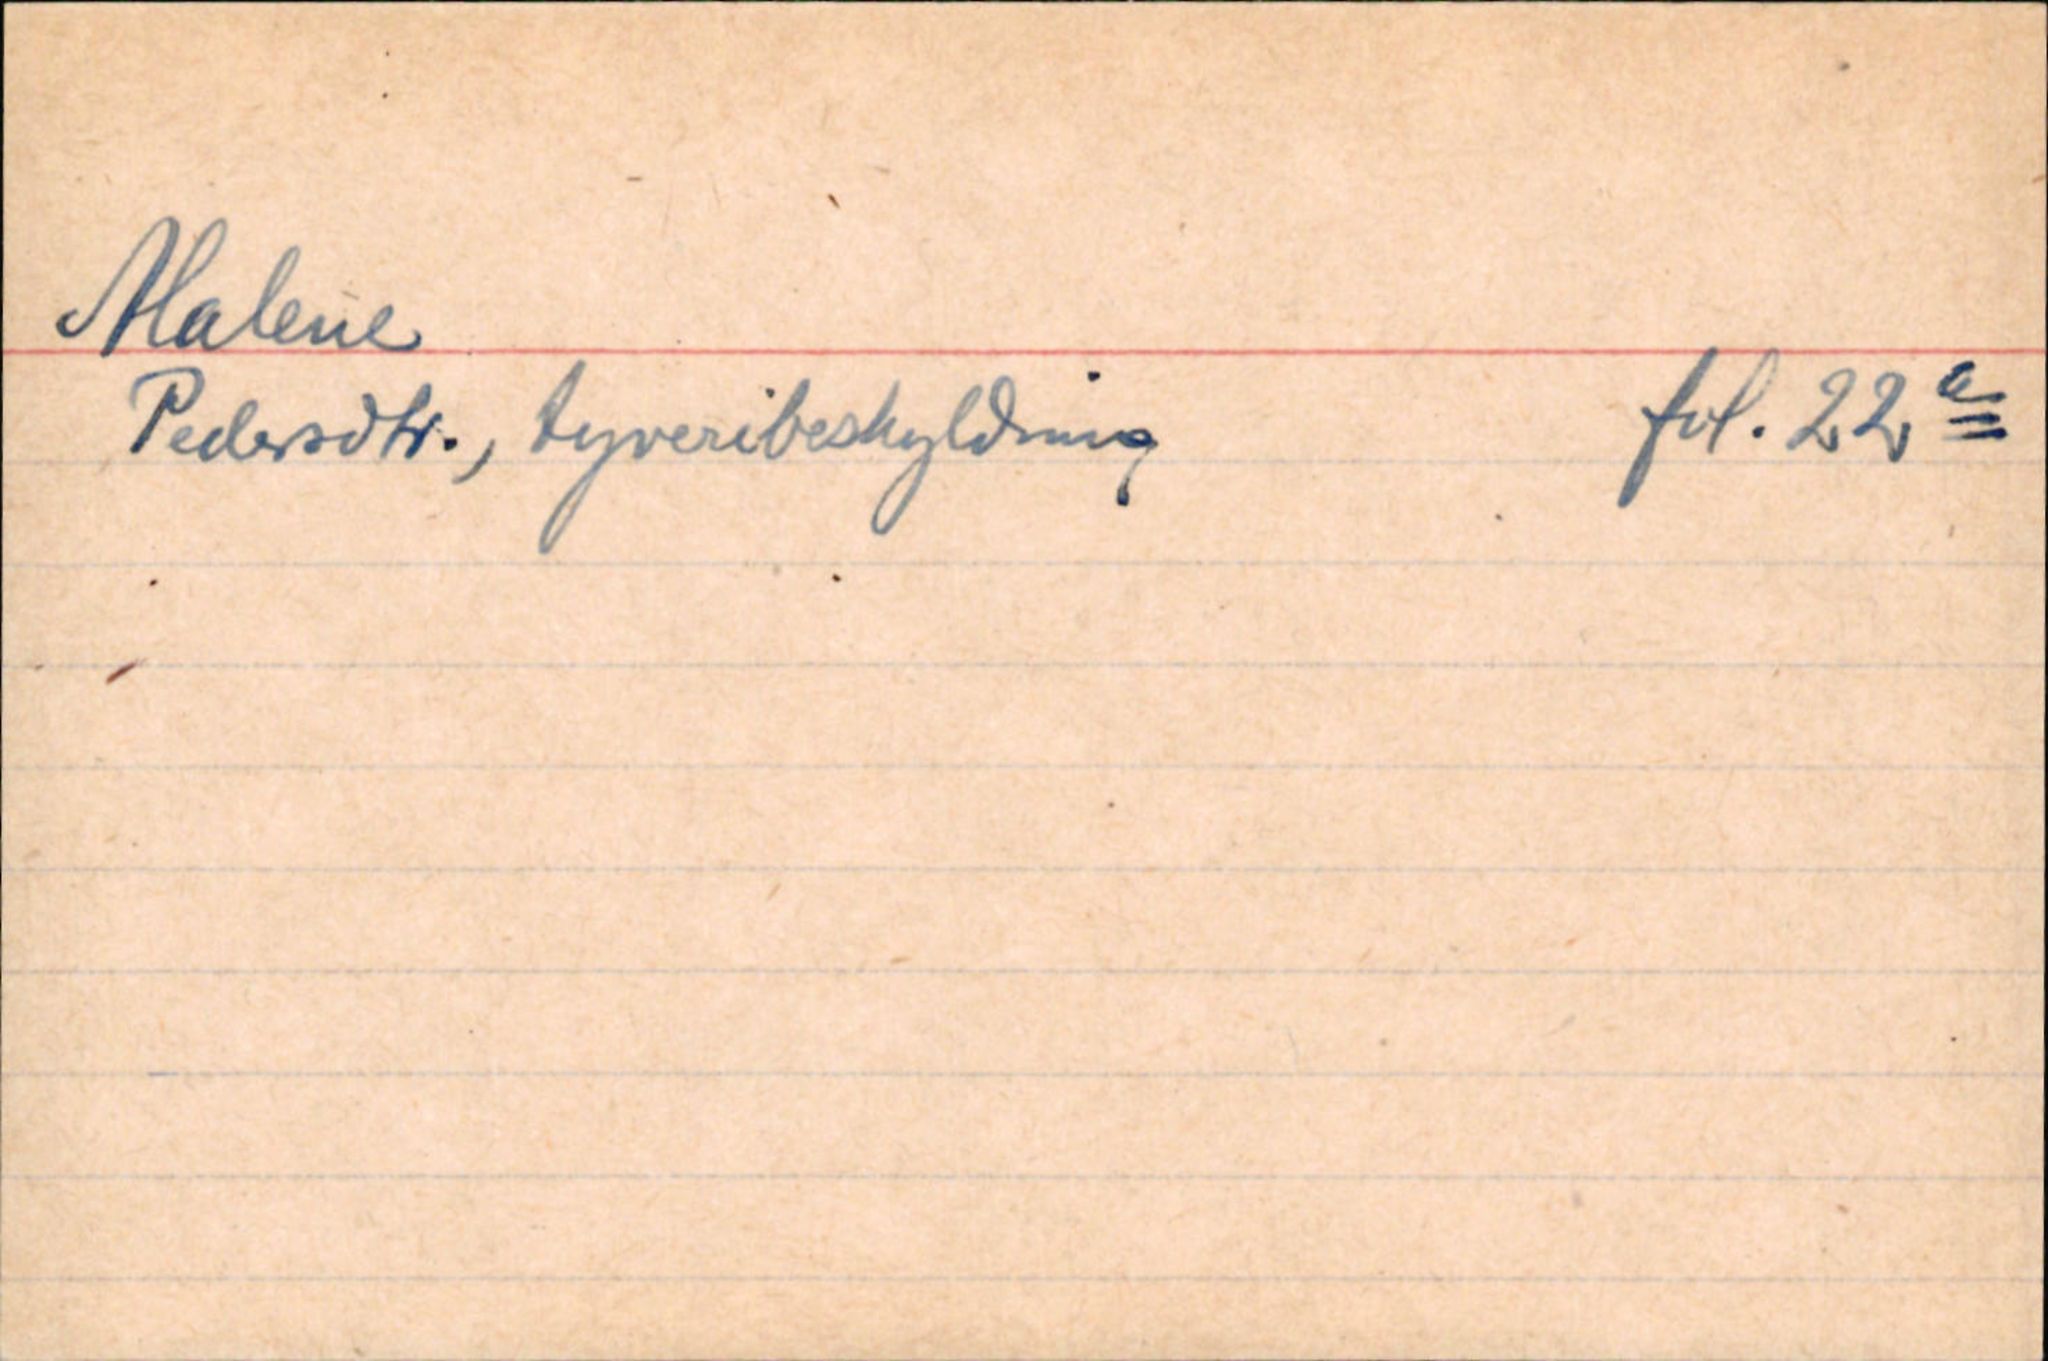 Malene
Pedersdtr., tyveribeskyldning fol. 22a